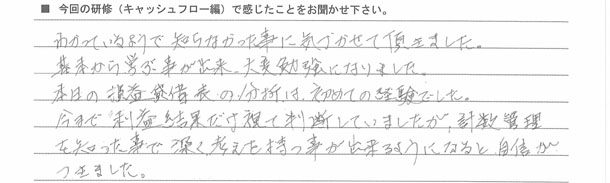 ■ 今回の研修（キャッシュフロー編）で感じたことをお聞かせ下さい。
わかっているようで知らなかった事に気づかせて頂きました。
基本から学ぶ事が出来、大変勉強になりました。
本日の損益貸借表の分析は、初めての経験でした。
今まで利益結果だけ視て判断していましたが、計数管理
を知った事で深く考えを持つ事が出来るようになると、自信が
つきました。